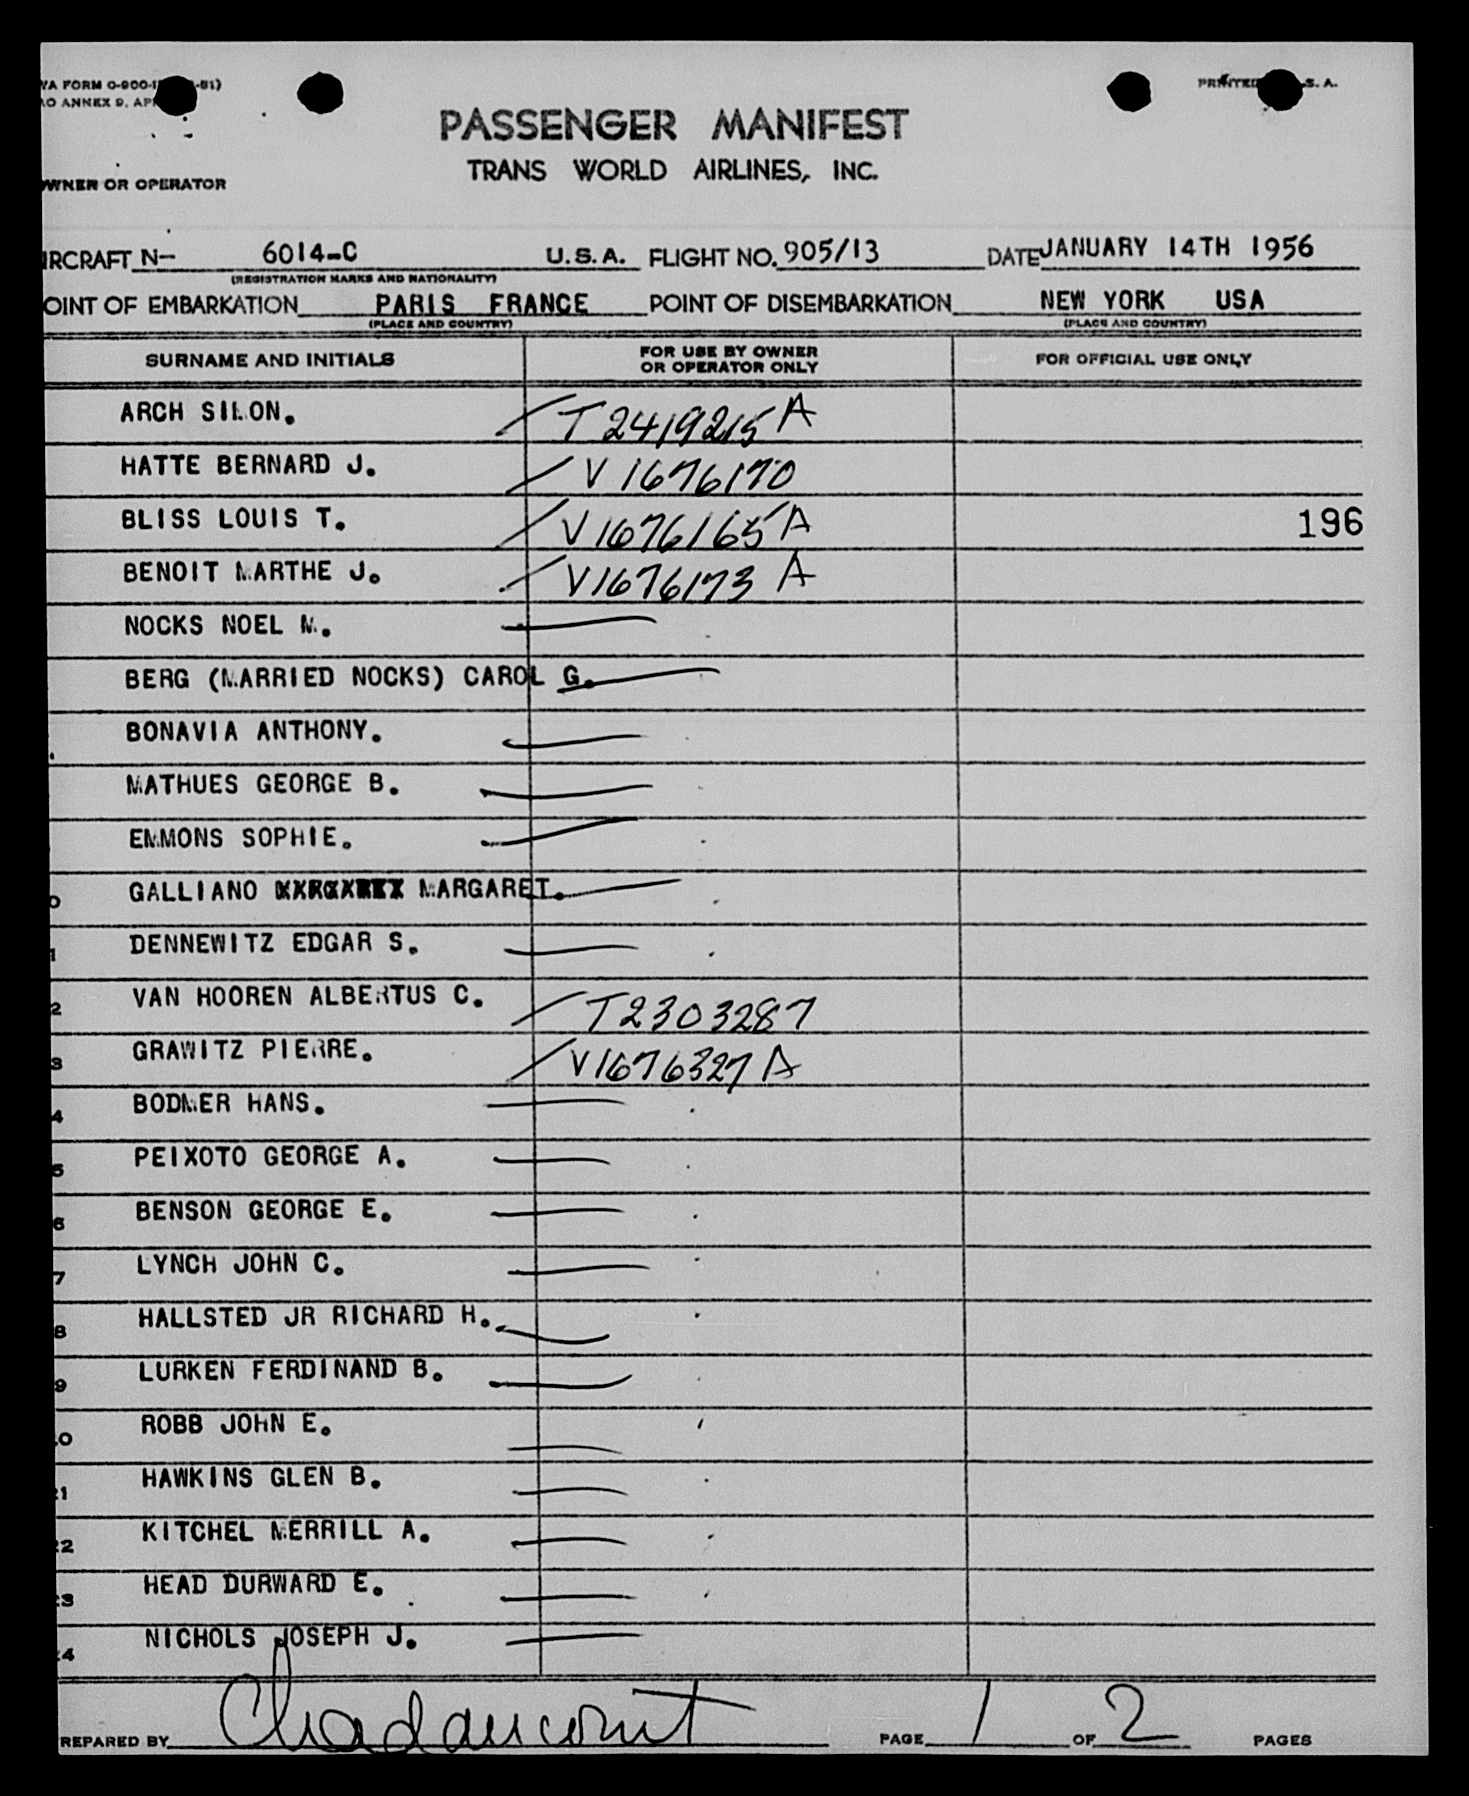 WA FORM O-900-1 -51)
AO ANNEX 9, AP
PRINTED S. A.
PASSENGER MANIFEST
TRANS WORLD AIRLINES, INC.
WNER OR OPERATOR
IRCRAFT N- 6014-C U.S.A. FLIGHT NO. 905/13 DATE JANUARY 14TH 1956
(REGISTRATION MARKS AND NATIONALITY)
OINT OF EMBARKATION PARIS FRANCE POINT OF DISEMBARKATION NEW YORK USA
(PLACE AND COUNTRY) (PLACE AND COUNTRY)
SURNAME AND INITIALS FOR USE BY OWNER OR OPERATOR ONLY FOR OFFICIAL USE ONLY
ARCH SILON. T2419215 A
HATTE BERNARD J. V1676170
BLISS LOUIS T. V1676165 A 196
BENOIT MARTHE J. V1676173 A
NOCKS NOEL M.
BERG (MARRIED NOCKS) CAROL G.
BONAVIA ANTHONY.
MATHUES GEORGE B.
EMMONS SOPHIE.
0 GALLIANO MARGARET.
1 DENNEWITZ EDGAR S.
2 VAN HOOREN ALBERTUS C. T2303287
3 GRAWITZ PIERRE. V1676327 A
4 BODMER HANS.
5 PEIXOTO GEORGE A.
6 BENSON GEORGE E.
7 LYNCH JOHN C.
8 HALLSTED JR RICHARD H.
9 LURKEN FERDINAND B.
0 ROBB JOHN E.
21 HAWKINS GLEN B.
22 KITCHEL MERRILL A.
23 HEAD DURWARD E.
24 NICHOLS JOSEPH J.
REPARED BY Chadancourt PAGE 1 OF 2 PAGES